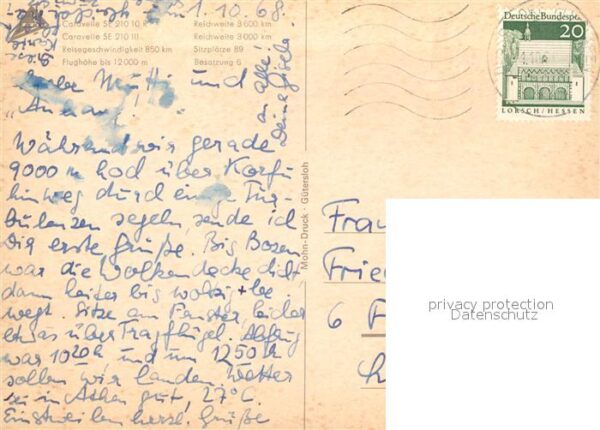 1.10.68.
Caravelle SE 210 10 R Reichweite 3 600 km
Caravelle SE 210 III R Reichweite 3 000 km
Reisegeschwindigkeit 850 km Sitzplätze 89
Flughöhe bis 12 000 m Besatzung 6
Mutti und
Während wir gerade
9000 m hoch über Korfu
hinweg durch einige Tur-
bulenzen segeln, sende ich
Dir erste Grüße. Bis Bozen
war die Wolkendecke dicht
dann heiter bis wolkig + be
wegt. Sitze am Fenster leider
etwas über Tragflügel. Abflug
war 10 20 h und um 12 50 h
sollen wir landen. Wetter
sei in Athen gut, 27°C.
Einstweilen herzl. Grüße
an alle
Deine Gisela
Mohn-Druck · Gütersloh
Deutsche Bundespost
20
LORSCH/HESSEN
Frau
Fried
6 F
privacy protection
Datenschutz